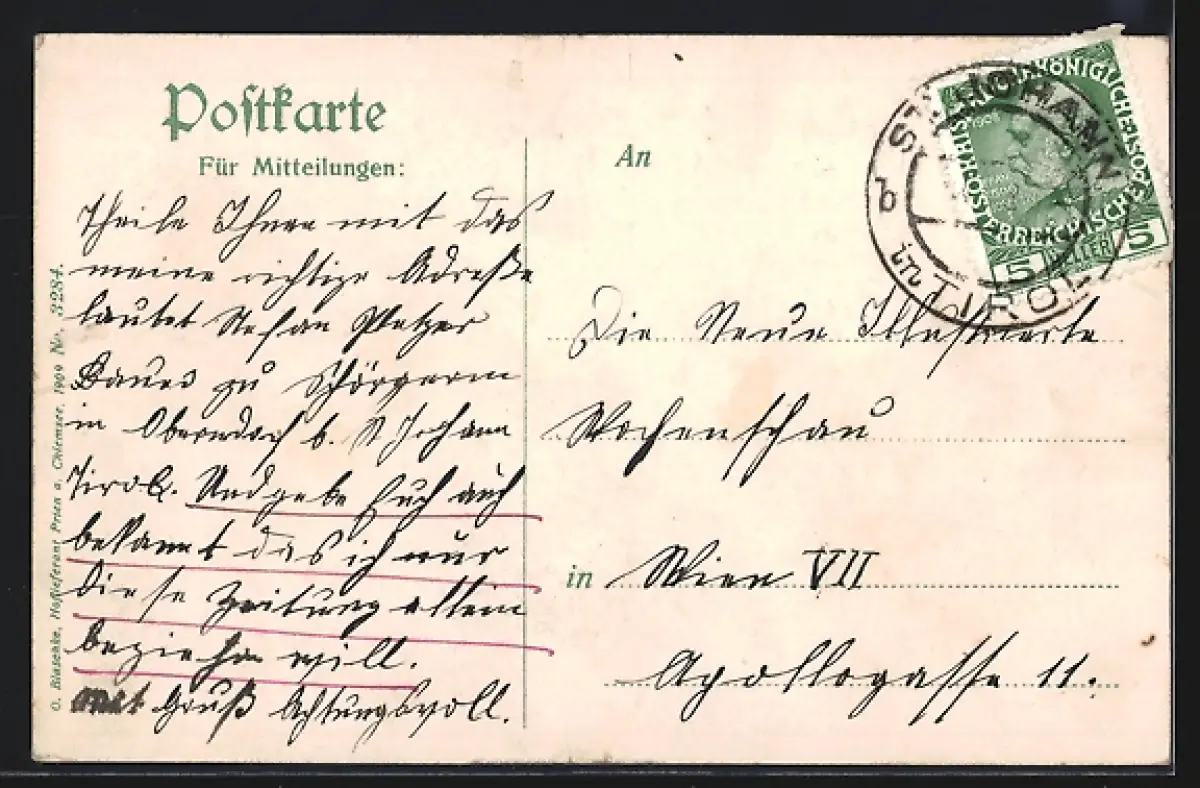 Postkarte
Für Mitteilungen:
Theile Ihnen mit das
meine richtige Adreße
lautet Stefan Platzer
Bauer zu Schörgerm
in Oberndorf b. St Johann
Tirol. Und gebe Euch auch
bekannt das ich nur
diese Zeitung allein
beziehen will.
mit Gruß Achtungsvoll.
O. Blaschke, Hoflieferant Prien a. Chiemsee. 1909 No. 3284.
An
Die Neue Illustrierte
Wochenschau
in Wien VII
Apollogasse 11.
ST. JOHANN
in TIROL
b
KAISERLICHE KÖNIGLICHE
ÖSTERREICHISCHE POST
5 HELLER 5